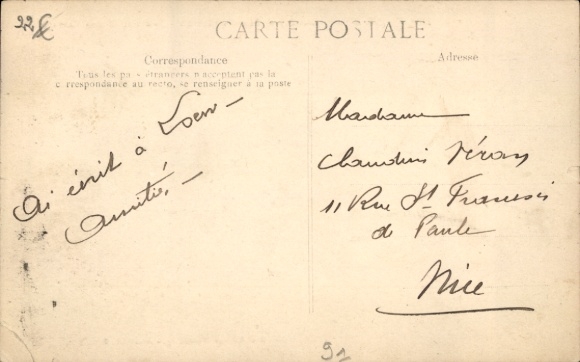 22 €
CARTE POSTALE
Correspondance
Tous les pays étrangers n'acceptent pas la
correspondance au recto, se renseigner à la poste
Adresse
Ai écrit à
Amitié,
Madame
Claudius Véran
11 Rue St François
de Paule
Nice
91